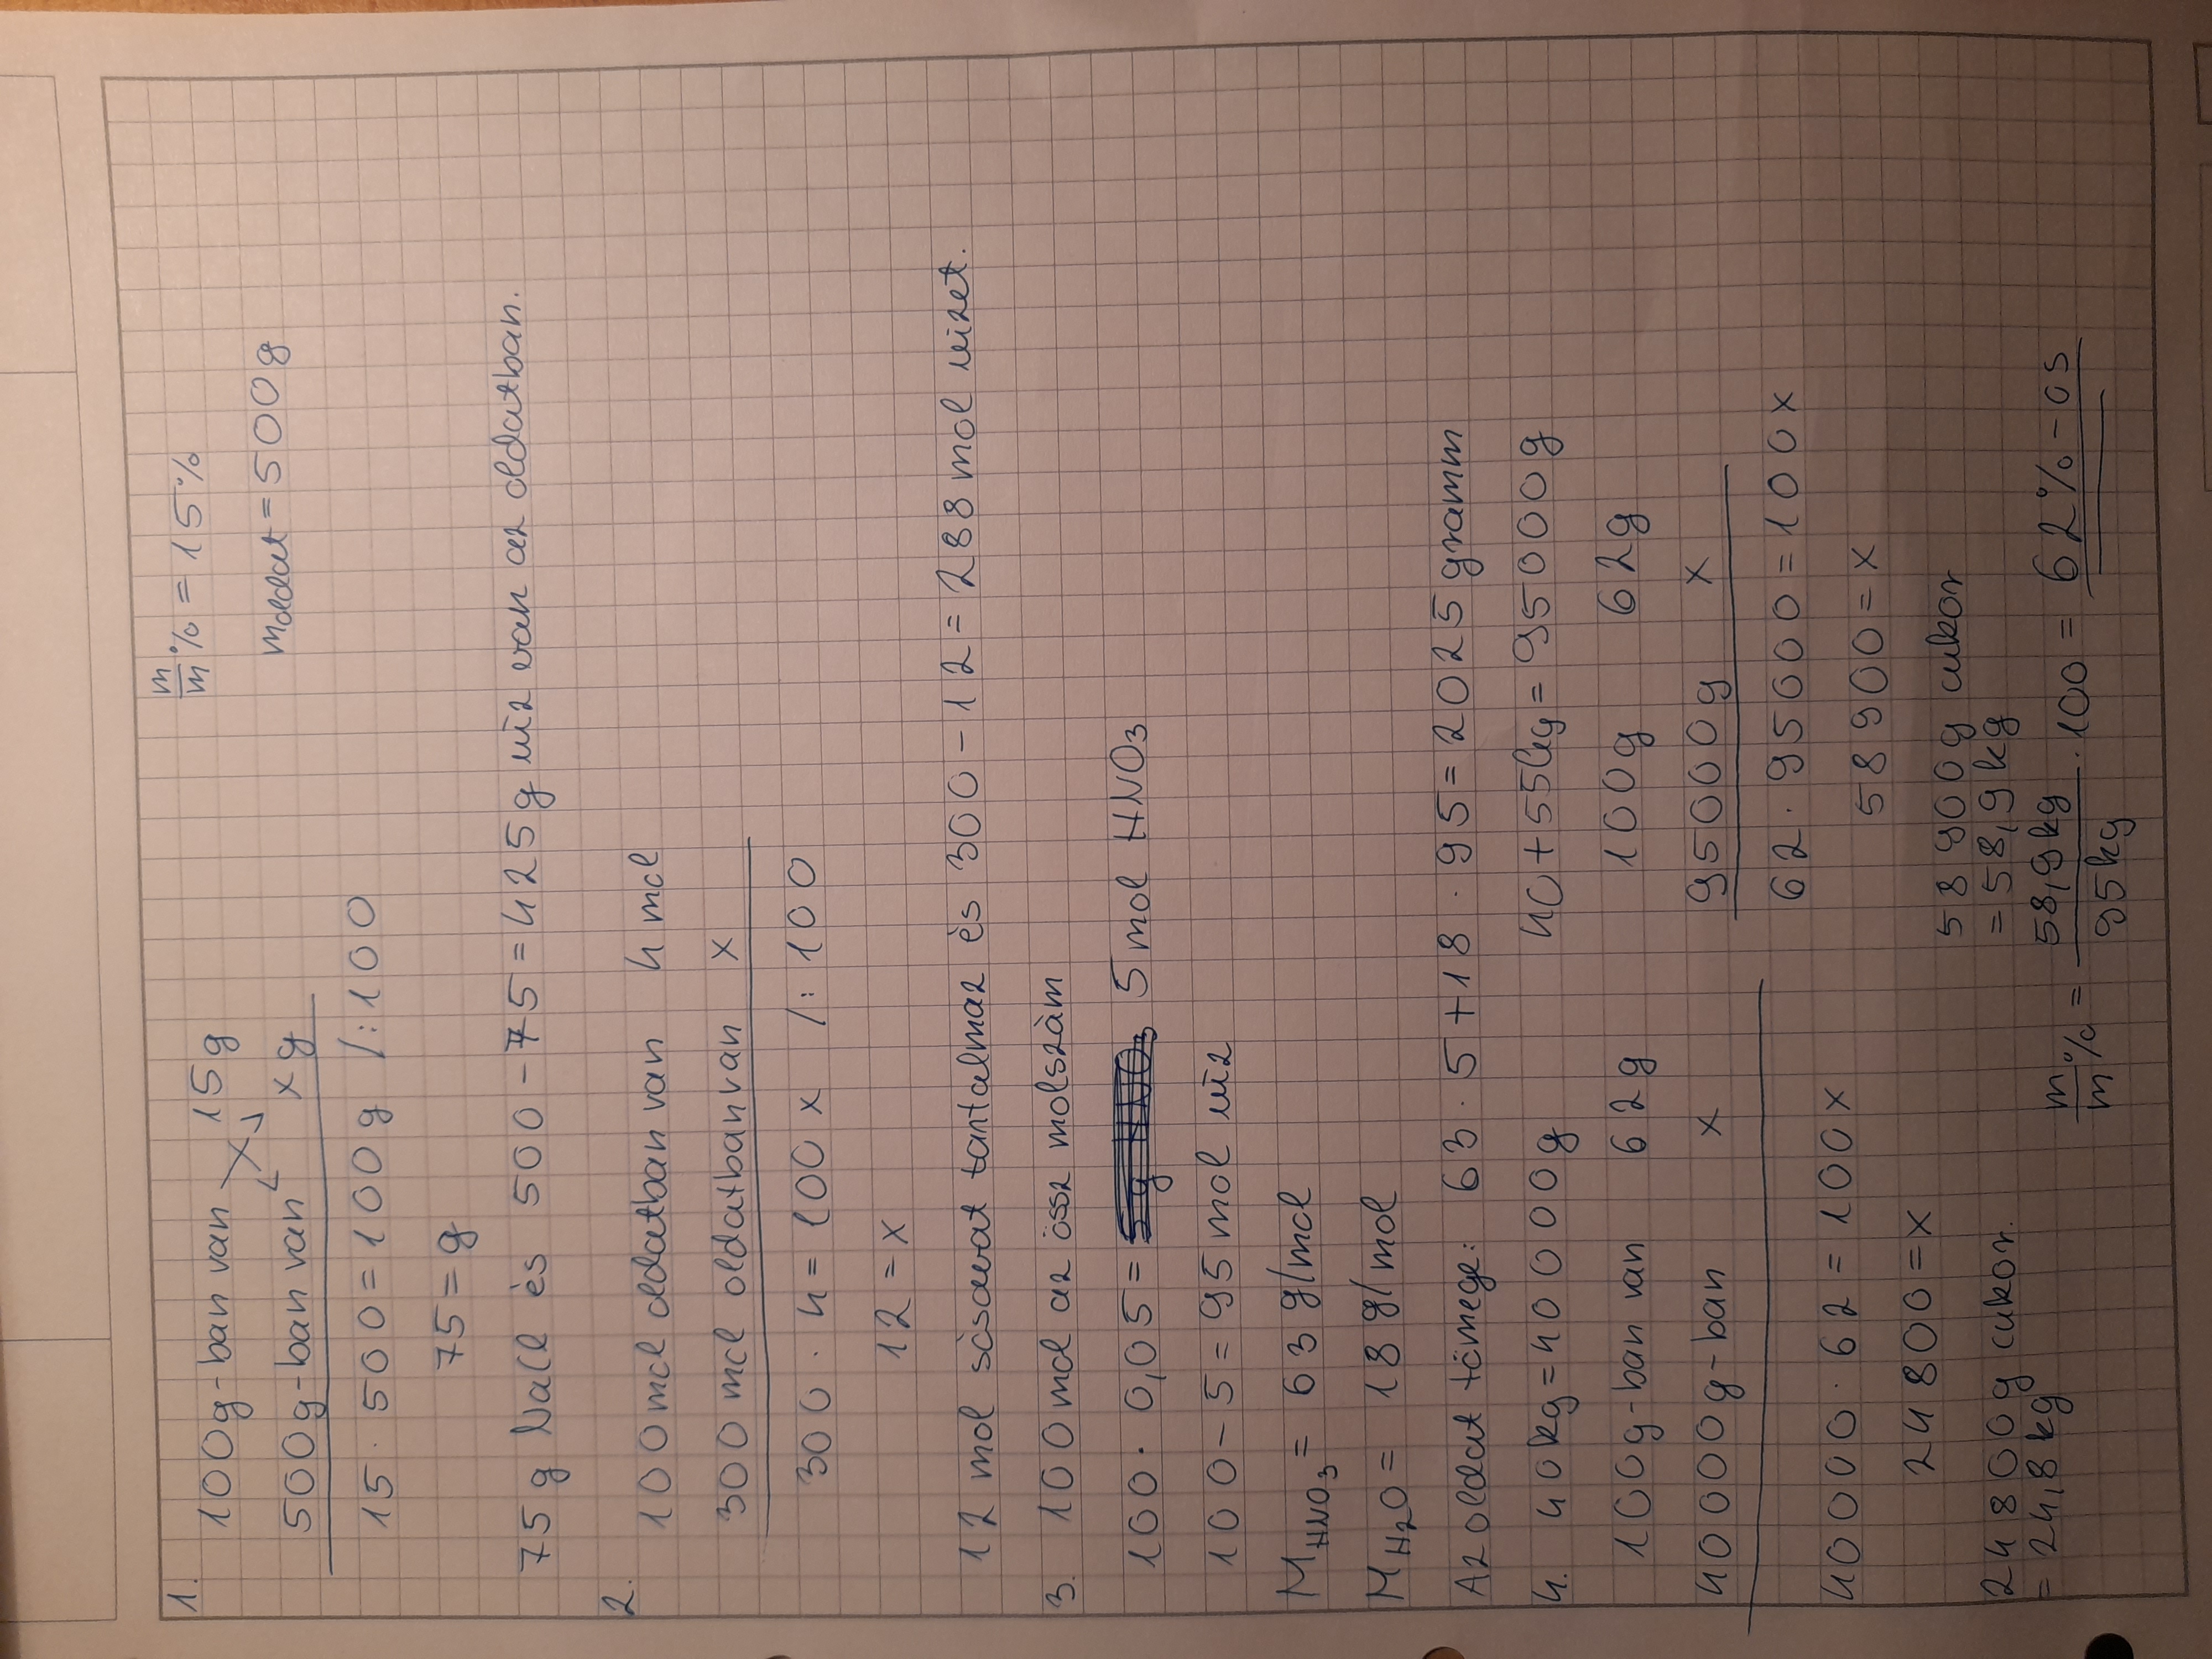 1.
100g-ban van 15g
m/m % = 15%
500g-ban van xg
moldat = 500g
15 · 500 = 100g /:100
75 = g
75g NaCl és 500 - 75 = 425g víz van az oldatban.
2.
100 mol oldatban van 4 mol
300 mol oldatban van x
300 · 4 = 100x /:100
12 = x
12 mol sósavat tantalmaz és 300 - 12 = 288 mol vizet.
3. 100 mol az össz molszám
100 · 0,05 = 5 mol HNO3
100 - 5 = 95 mol víz
MHNO3 = 63 g/mol
MH2O = 18 g/mol
Az oldat tömege: 63 · 5 + 18 · 95 = 2025 gramm
4. 40kg = 40000g 40 + 55kg = 95000g
100g-ban van 62g 100g 62g
40000g-ban x 95000g x
40000 · 62 = 100x 62 · 95000 = 100x
24800 = x 58900 = x
24800g cukor. 58900g cukor
= 24,8kg = 58,9kg
m/m % = 58,9kg/95kg · 100 = 62%-os